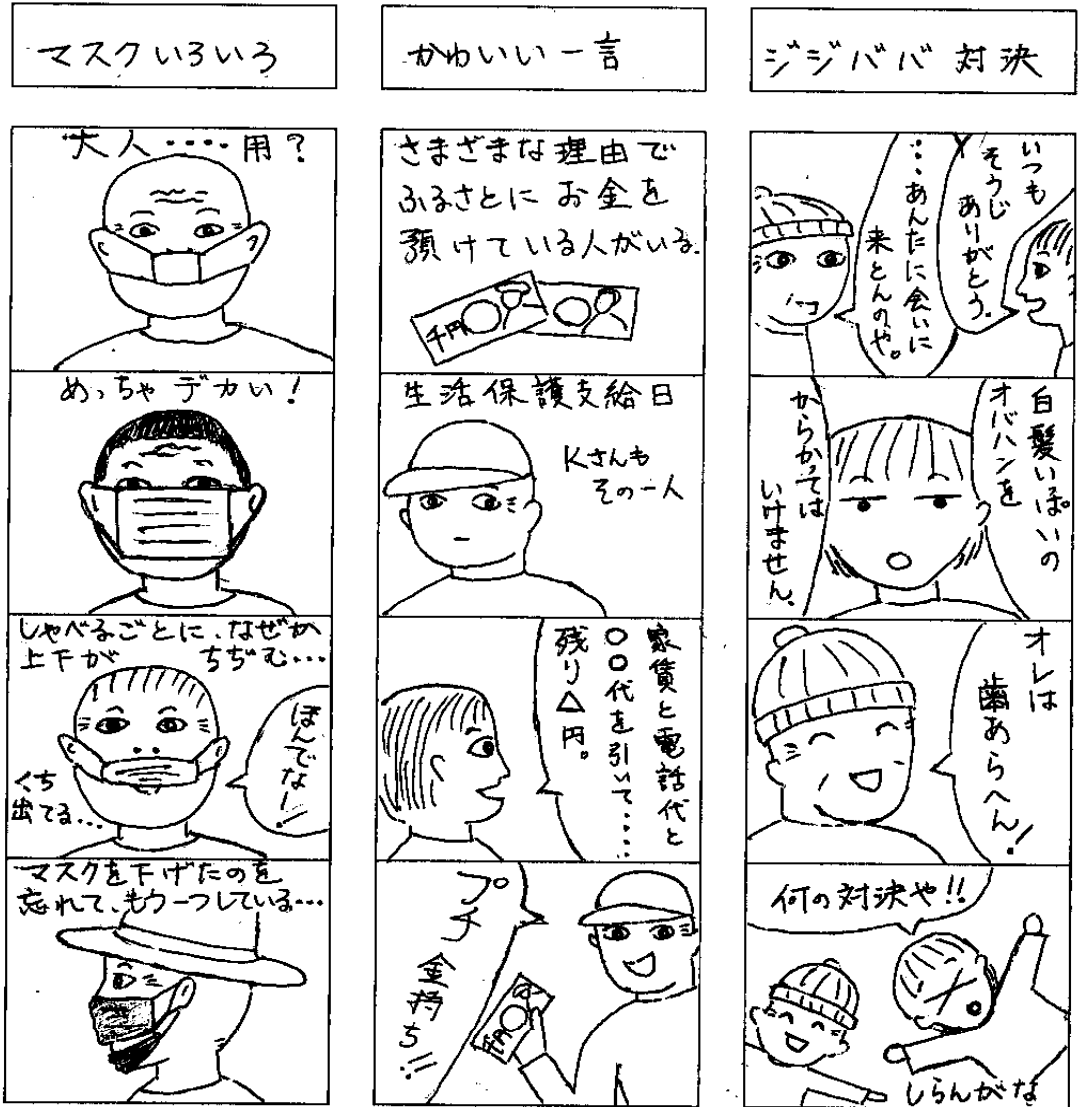 マスクいろいろ
大人‥‥用?
めっちゃデカい!
しゃべるごとに、なぜか
上下が ちぢむ…
ぼんでな!!
くち
出てる…
マスクを下げたのを
忘れて、もう一つしている…
かわいい一言
さまざまな理由で
ふるさとにお金を
預けている人がいる。
千円
生活保護支給日
Kさんも
その一人
家賃と電話代と
〇〇代を引いて‥‥‥
残り△円。
プチ
金持ち!!
千円
ジジババ対決
いつも
そうじ
ありがとう。
…あんたに会いに
来とんのや。
白髪いっぽいの
オバハンを
からかっては
いけません。
オレは
歯あらへん!
何の対決や!!
しらんがな